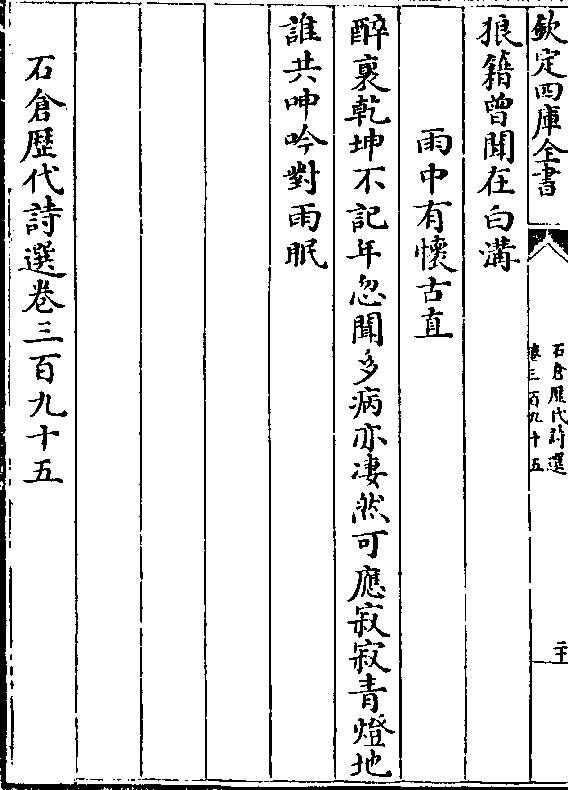 欽定四庫全書
石倉歴代詩選
卷三百九十五
狼籍曽聞在白溝
雨中有懷古直
醉裏乾坤不記年忽聞多病亦凄然可應寂寂青燈地
誰共呻吟對雨眠
石倉歴代詩選卷三百九十五